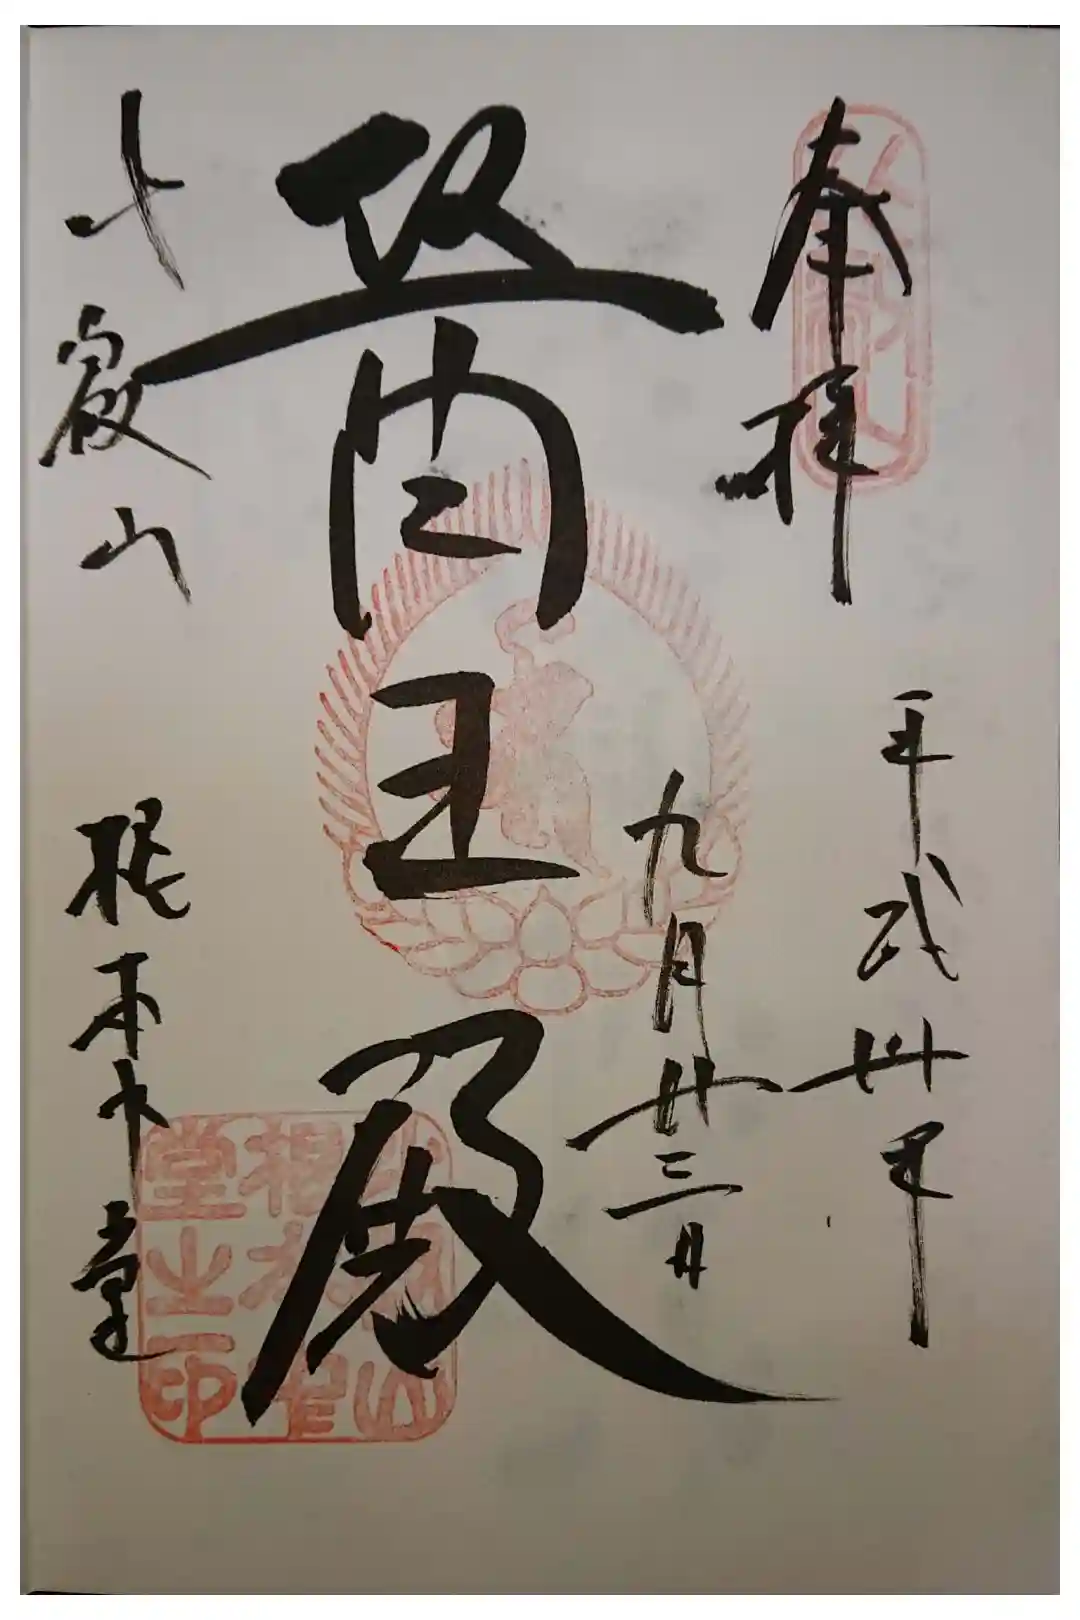 奉拝
平成卅年
九月廿三日
醫王殿
比叡山
根本中堂
比叡山
根本中
堂之印